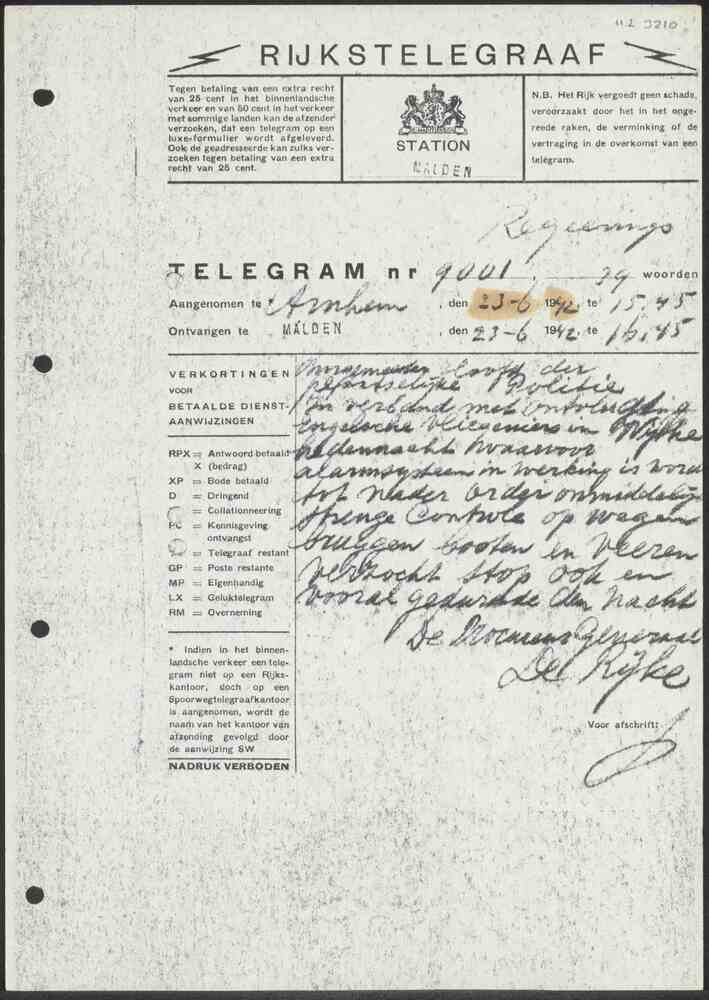 RIJKSTELEGRAAF
Tegen betaling van een extra recht
van 25 cent in het binnenlandsche
verkeer en van 50 cent in het verkeer
met sommige landen kan de afzender
verzoeken, dat een telegram op een
luxe-formulier wordt afgeleverd.
Ook de geadresseerde kan zulks ver-
zoeken tegen betaling van een extra
recht van 25 cent.
STATION
MALDEN
N.B. Het Rijk vergoedt geen schade,
veroorzaakt door het in het onge-
reede raken, de verminking of de
vertraging in de overkomst van een
telegram.
Regeerings
TELEGRAM nr 9001. 39 woorden
Aangenomen te Arnhem, den 23-6 1942, te 15.45
Ontvangen te MALDEN, den 23-6 1942, te 16.45
VERKORTINGEN
VOOR
BETAALDE DIENST-
AANWIJZINGEN
RPX = Antwoord betaald
X (bedrag)
XP = Bode betaald
D = Dringend
= Collationneering
PC = Kennisgeving
ontvangst
= Telegraaf restant
GP = Poste restante
MP = Eigenhandig
LX = Geluktelegram
RM = Overneming
* Indien in het binnen-
landsche verkeer een tele-
gram niet op een Rijks-
kantoor, doch op een
Spoorwegtelegraafkantoor
is aangenomen, wordt de
naam van het kantoor van
afzending gevolgd door
de aanwijzing SW
NADRUK VERBODEN
Burgemeester Hoofd der
Politie
In verband met ontvluchting
Engelsche vliegeniers en
hedennacht waarvoor
alarmsysteem in werking is word
tot nader order onmiddelijk
strenge Controle op wegen
bruggen booten en veeren
verzocht stop ook en
vooral gedurende den nacht
De Procureur Generaal
De Rijke
Voor afschrift: